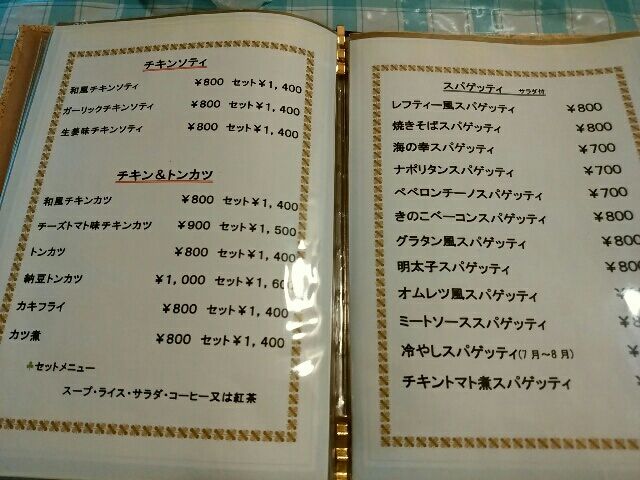 チキンソティ
和風チキンソティ ¥800 セット¥1,400
ガーリックチキンソティ ¥800 セット¥1,400
生姜味チキンソティ ¥800 セット¥1,400
チキン&トンカツ
和風チキンカツ ¥800 セット¥1,400
チーズトマト味チキンカツ ¥900 セット¥1,500
トンカツ ¥800 セット¥1,400
納豆トンカツ ¥1,000 セット¥1,600
カキフライ ¥800 セット¥1,400
カツ煮 ¥800 セット¥1,400
☘セットメニュー
スープ・ライス・サラダ・コーヒー又は紅茶
スパゲッティ サラダ付
レフティー風スパゲッティ ¥800
焼きそばスパゲッティ ¥800
海の幸スパゲッティ ¥700
ナポリタンスパゲッティ ¥700
ペペロンチーノスパゲッティ ¥700
きのこベーコンスパゲッティ ¥800
グラタン風スパゲッティ ¥800
明太子スパゲッティ ¥800
オムレツ風スパゲッティ
ミートソーススパゲッティ
冷やしスパゲッティ(7月~8月)
チキントマト煮スパゲッティ